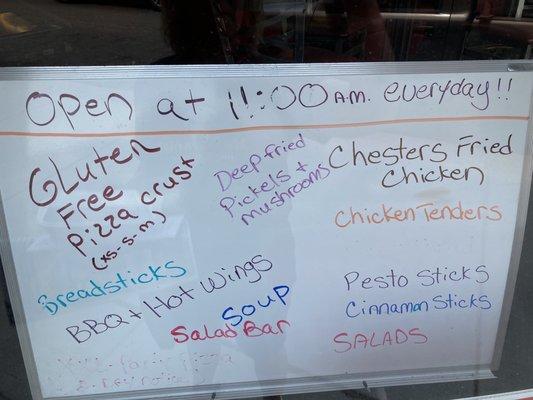 Open at 11:00 A.M. everyday!!
Gluten
Free
Pizza crust
(xs-s-m)
Deep fried
Pickels +
mushrooms
Chesters Fried
Chicken
Chicken Tenders
Breadsticks
BBQ + Hot Wings
Soup
Salad Bar
Pesto Sticks
Cinnamon Sticks
SALADS